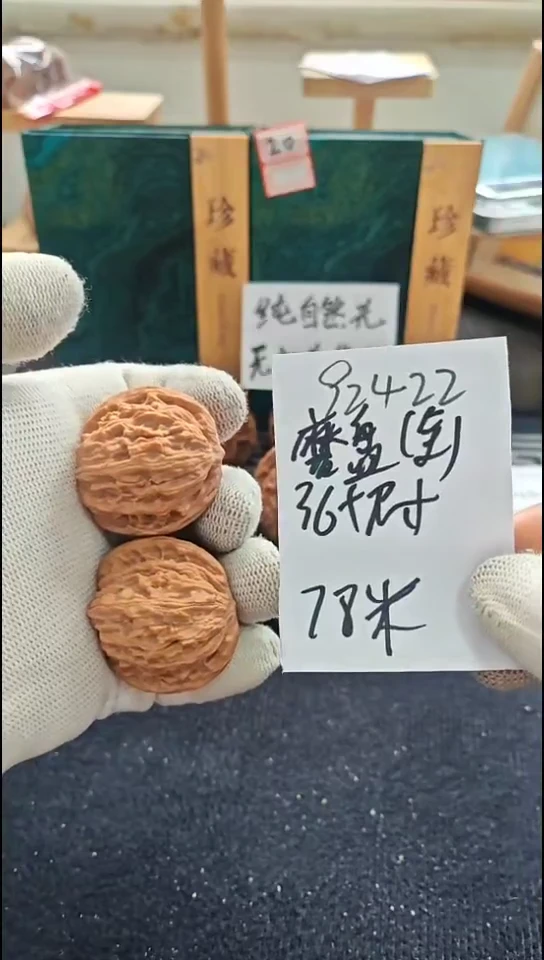 20
珍藏
珍藏
纯自然光
无
92422
蘑盘(宝)
36+尺寸
78米